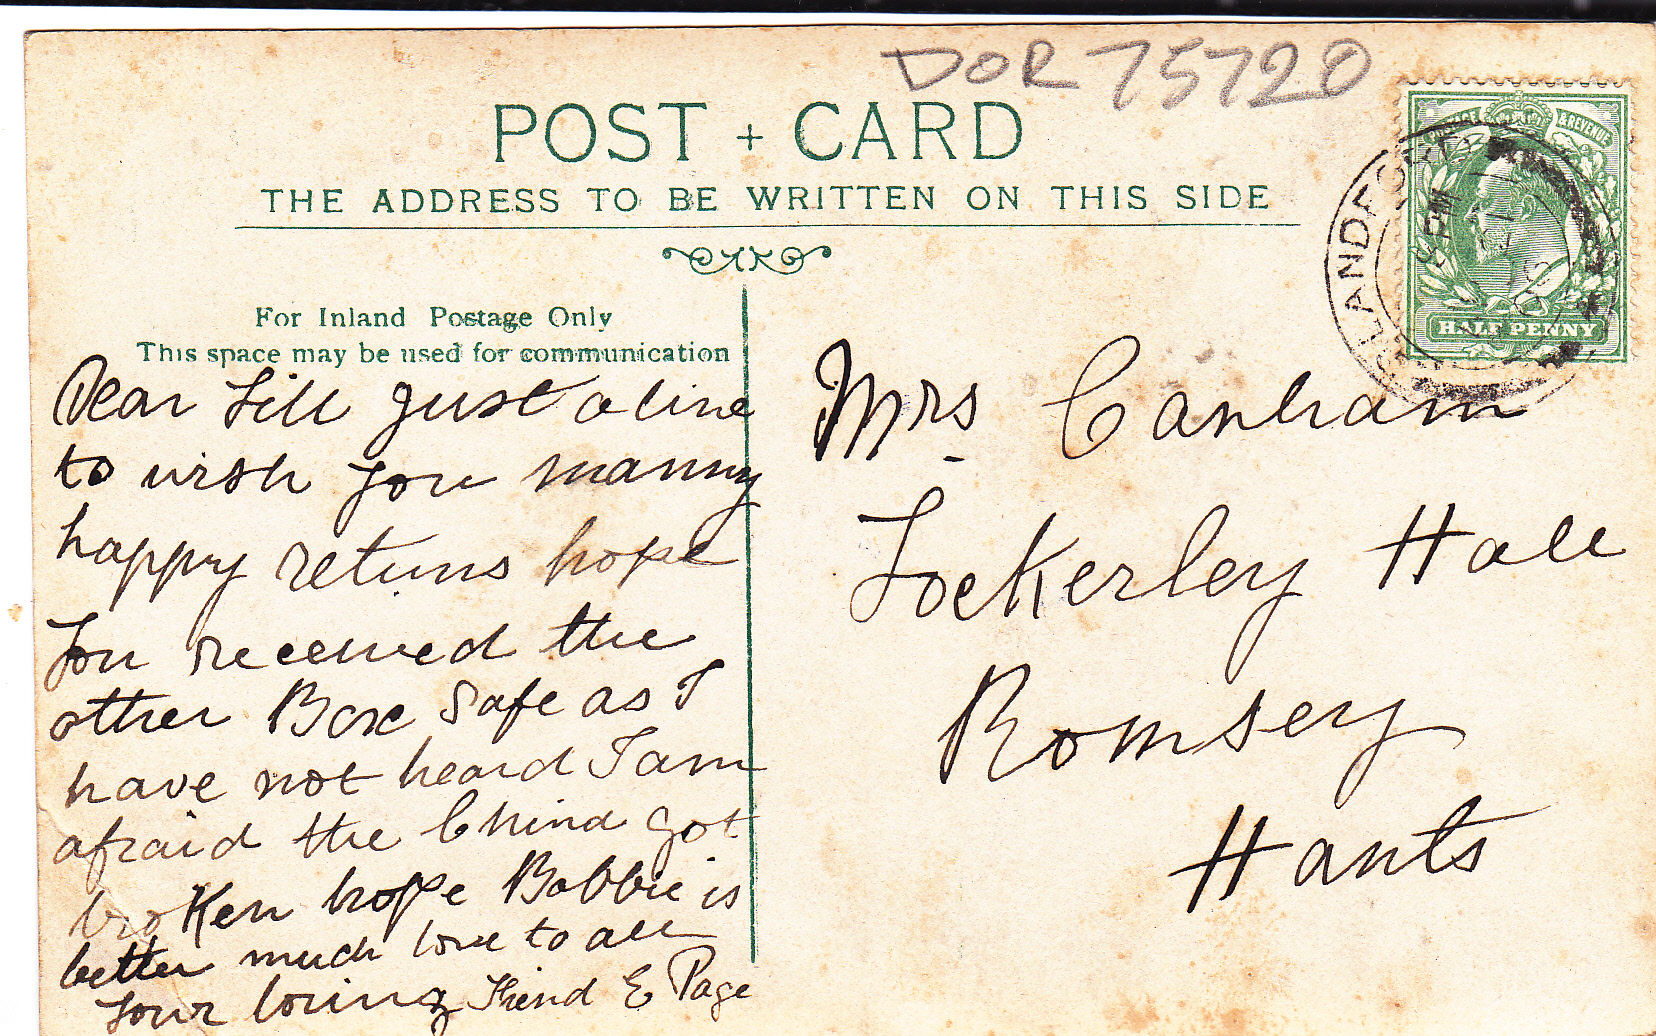 DOR 75720
POST + CARD
THE ADDRESS TO BE WRITTEN ON THIS SIDE
POSTAGE & REVENUE
BLANDFORD
8 PM
HALF PENNY
For Inland Postage Only
This space may be used for communication
Dear Lill just a line
to wish you manny
happy returns hope
you received the
other Box safe as I
have not heard I am
afraid the China got
broken hope Bobbie is
better much love to all
Your loving Friend E Page
Mrs Canham
Lockerley Hall
Romsey
Hants